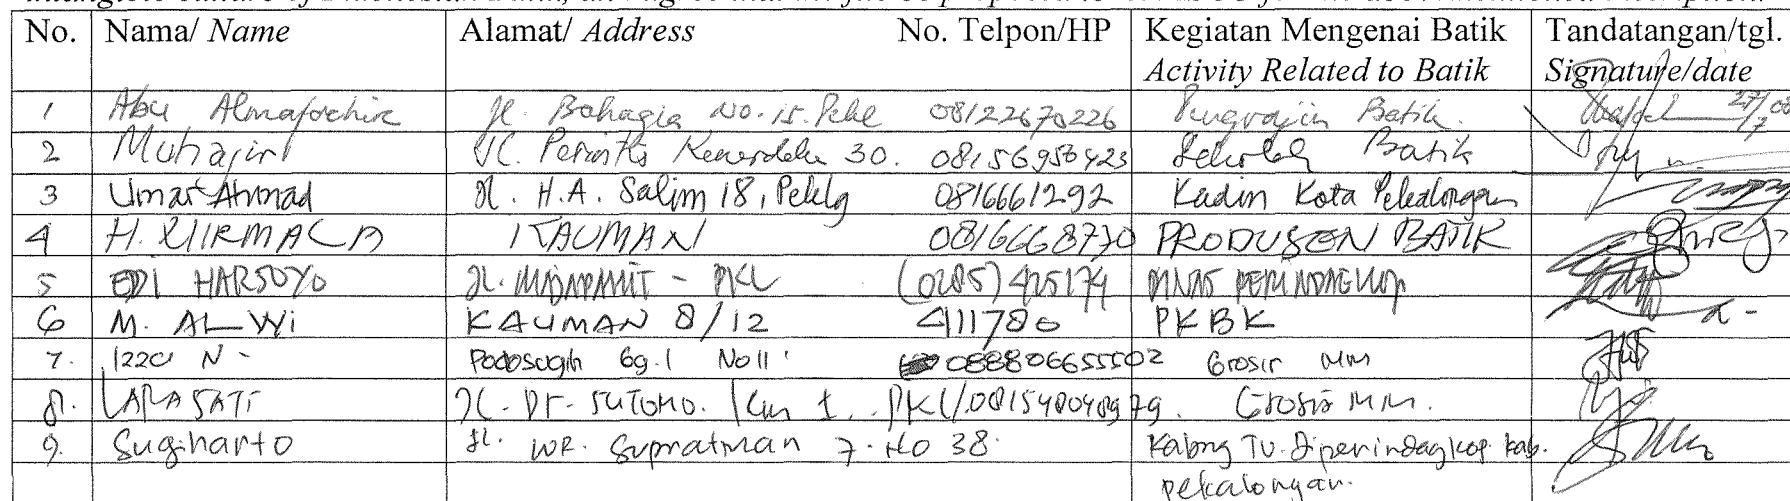 No. Nama/ Name Alamat/ Address No. Telpon/HP Kegiatan Mengenai Batik Tandatangan/tgl.
Activity Related to Batik Signature/date
1 Abu Almafachir Jl. Bahagia No. 15. Pekl 08122670226 Pengrajin Batik. 27/7 08
2 Muhajir Jl. Perintis Kemerdekaan 30. 08156956423 Sekolah Batik
3 Umar Ahmad Jl. H.A. Salim 18, Peklg 0816661292 Kadin Kota Pekalongan
4 H. KAUMAN 0816668770 PRODUSEN BATIK
5 EDI HARSOYO Jl. - PKL (0285) 425174 DINAS PERINDAGKOP
6 M. ALWi KAUMAN 8/12 411780 PKBK
7. N - Podosugih Gg. 1 No 11 088806655502 Grosir MM
8. LARASATI Jl. Dr. SUTOMO. PKL/ Grosir MM.
9. Sugiharto Jl. WR. Supratman 7. No 38. TU. Diperindagkop. kab.
pekalongan.